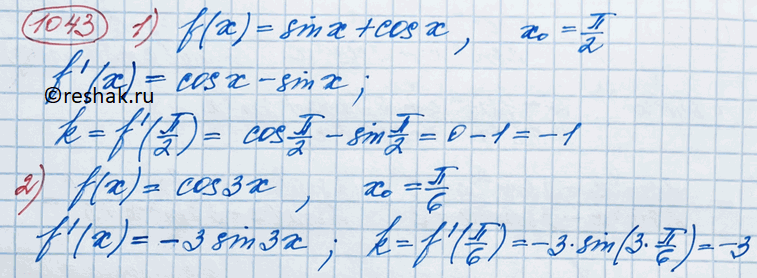 1043 1) f(x) = sin x + cos x, x₀ = π/2
f'(x) = cos x - sin x;
©reshak.ru
k = f'(π/2) = cos π/2 - sin π/2 = 0 - 1 = -1
2) f(x) = cos 3x, x₀ = π/6
f'(x) = -3 sin 3x; k = f'(π/6) = -3 · sin(3 · π/6) = -3